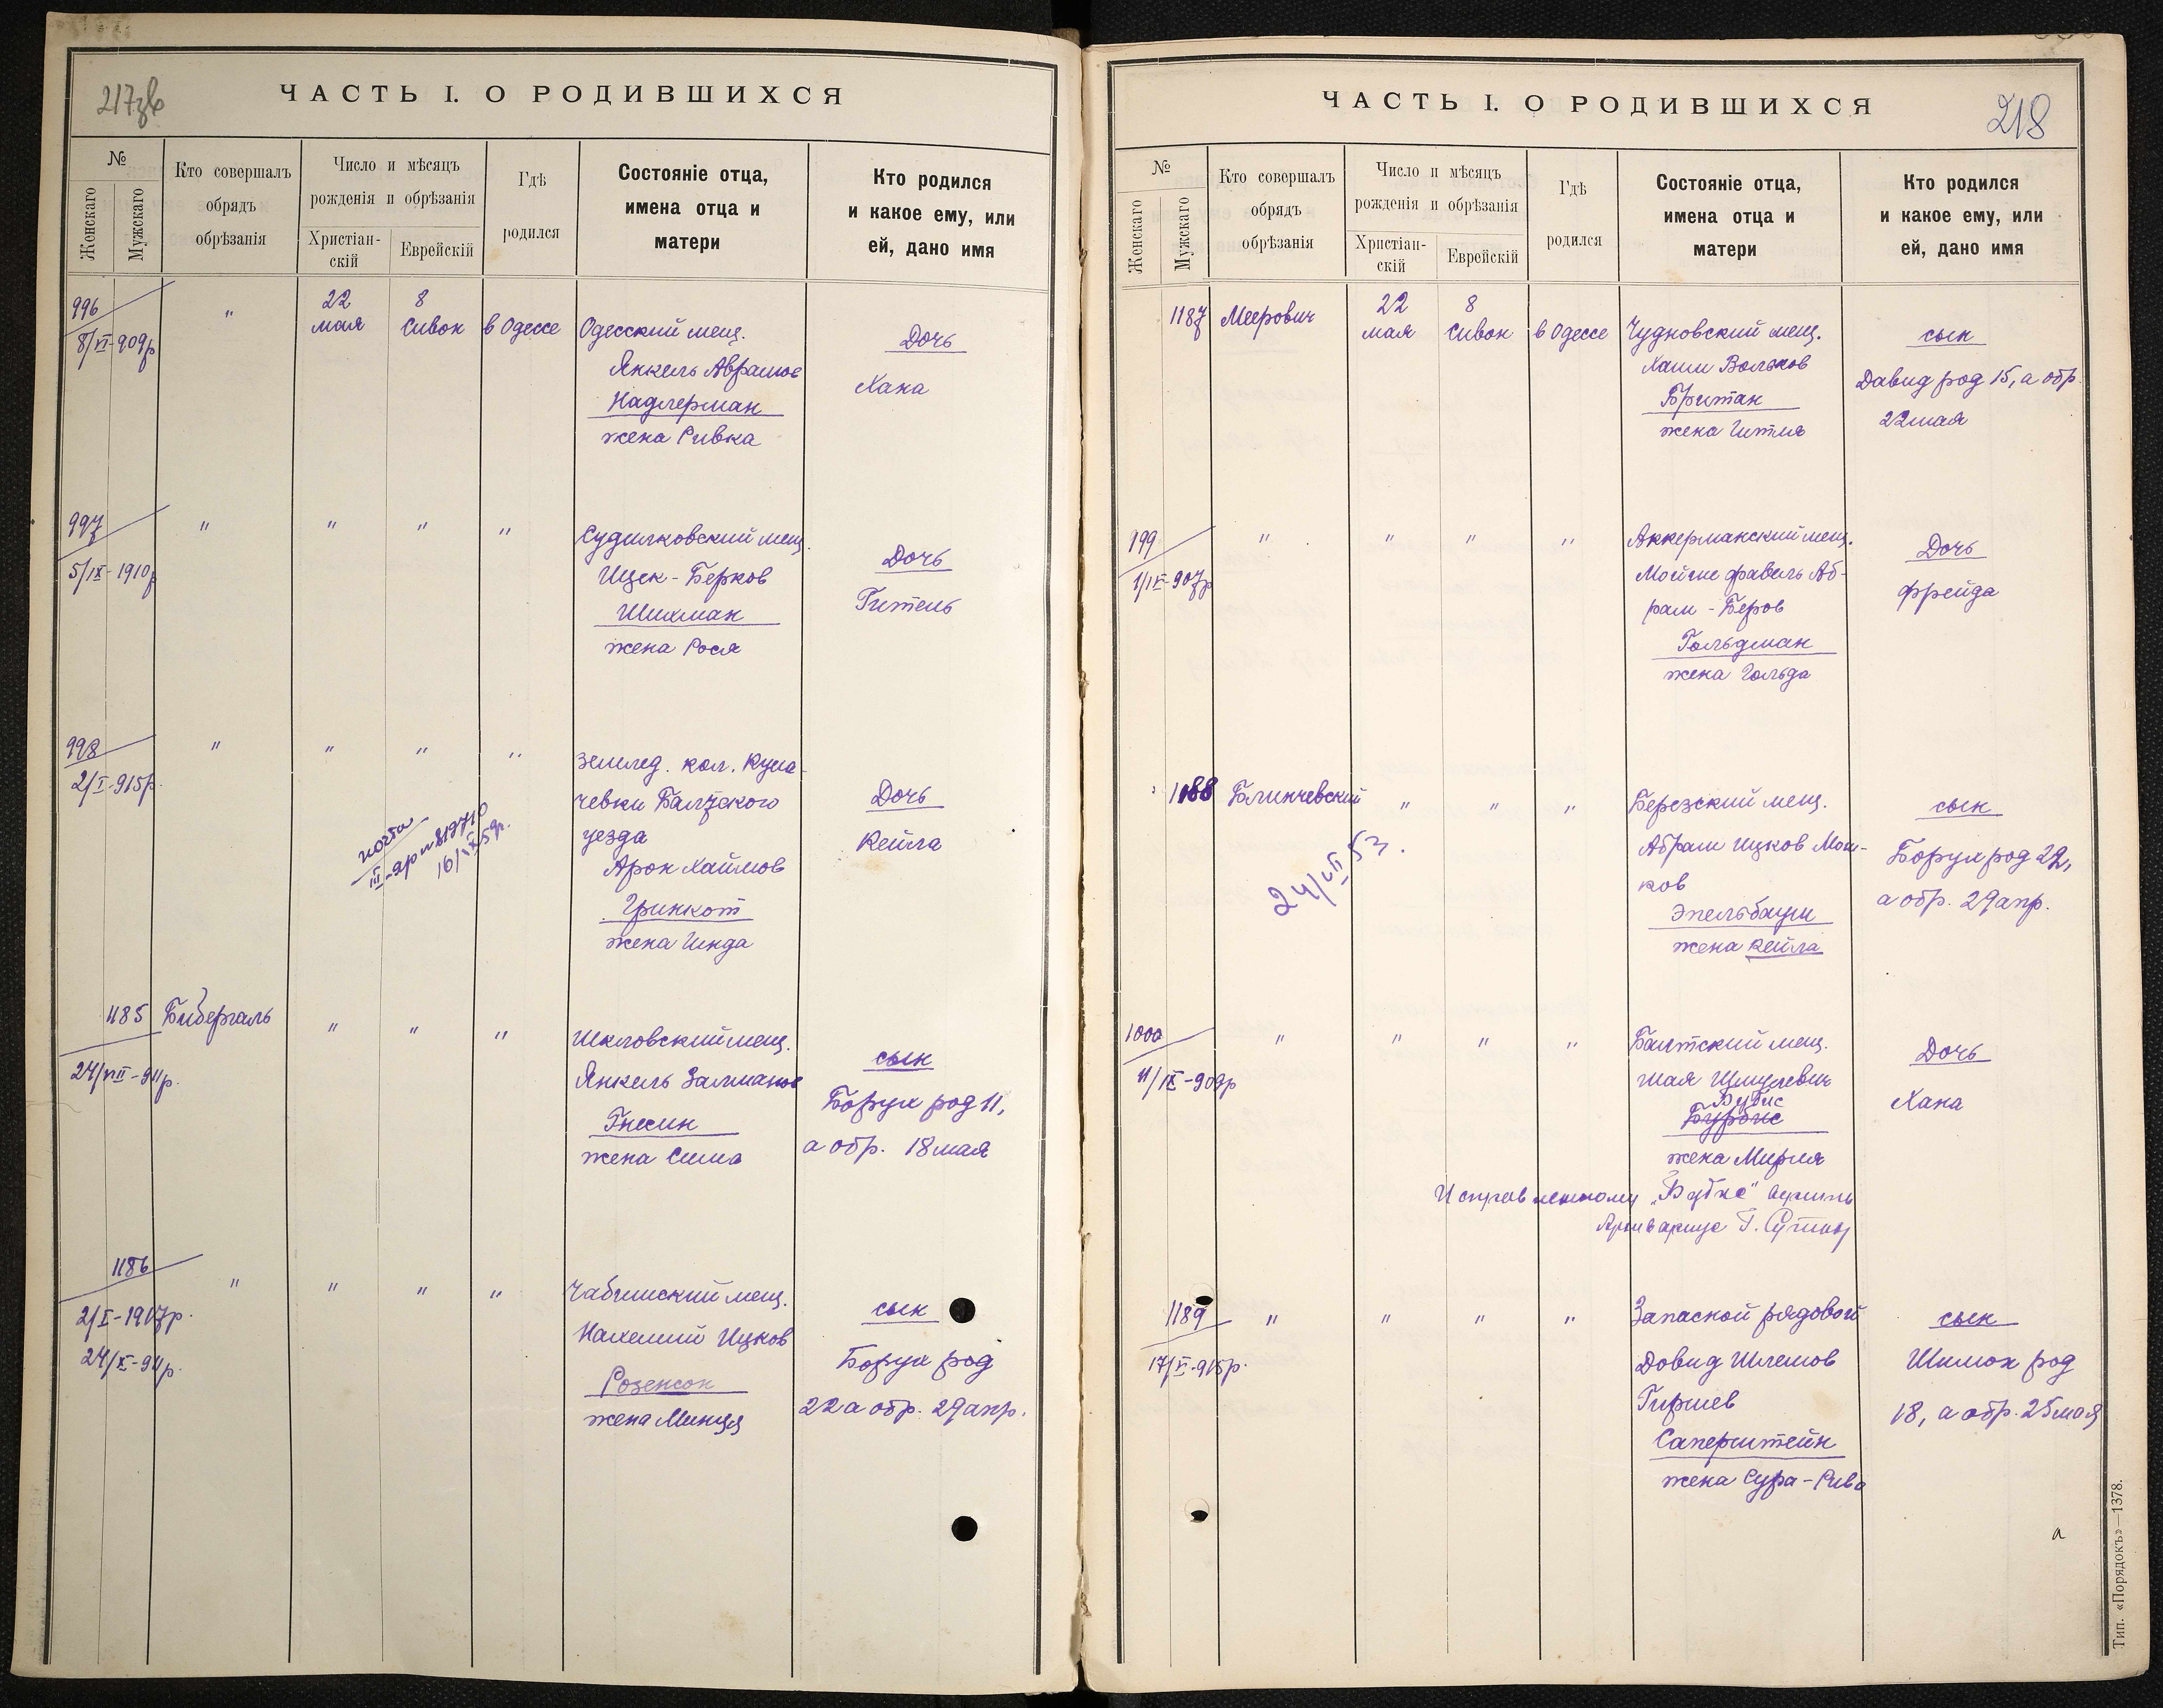 217зв
ЧАСТЬ I. О РОДИВШИХСЯ
№
Женскаго
Мужскаго
Кто совершалъ
обрядъ
обрѣзанія
Число и мѣсяцъ
рожденія и обрѣзанія
Христіан-
скій
Еврейскій
Гдѣ
родился
Состояніе отца,
имена отца и
матери
Кто родился
и какое ему, или
ей, дано имя
996
8/VI-909р
"
22
мая
8
Сивон
в Одессе
Одесский мещ.
Янкель Аврамов
Надлерман
жена Ривка
Дочь
Хана
997
5/IX-1910р
" " " "
Судилковский мещ.
Ицек-Берков
Шихман
жена Рося
Дочь
Гитель
998
2/I-915р.
" " " "
землед. кол.
Балтского
уезда
Арон Хаимов
Гринкот
жена Гинда
Дочь
Кейла
почта
16/IX 59г.
1185
24/VIII-911р.
Бибергаль
" " "
Шкловский мещ.
Янкель Залманов
Гнесин
жена Сима
сын
Борух род 11,
а обр. 18 мая
1186
2/I-1917р.
24/X-911р.
" " " "
мещ.
Ицков
Розенсон
жена Минця
сын
Борух род
22 а обр. 29 апр.
218
ЧАСТЬ I. О РОДИВШИХСЯ
№
Женскаго
Мужскаго
Кто совершалъ
обрядъ
обрѣзанія
Число и мѣсяцъ
рожденія и обрѣзанія
Христіан-
скій
Еврейскій
Гдѣ
родился
Состояніе отца,
имена отца и
матери
Кто родился
и какое ему, или
ей, дано имя
1187
Меерович
22
мая
8
Сивон
в Одессе
Чудновский мещ.
Хаим Вольков
Британ
жена Гитля
сын
Давид род 15, а обр.
22 мая
199
1/IX-907р
" " " "
Аккерманский мещ.
Мойше фавель Аб-
рам-Беров
Гольдман
жена Гольда
Дочь
фрейда
1188
Блинчевский
" " "
24/VII 53.
Березский мещ.
Абрам Ицков Мош-
ков
Эпельбаум
жена Кейла
сын
Борух род 22,
а обр. 29 апр.
1000
11/IX-909р
" " " "
Балтский мещ.
Шая Шмулевич
Вубис
жена Мирля
Дочь
Хана
Исправленному „Вубис" верить
Архивариус
1189
17/VI-915р.
" " " "
Запасной рядовой
Довид Шлемов
Гиршев
Саперштейн
жена Сура-Рива
сын
Шимон род
18, а обр. 25 мая
а
Тип. «Порядокъ»—1378.